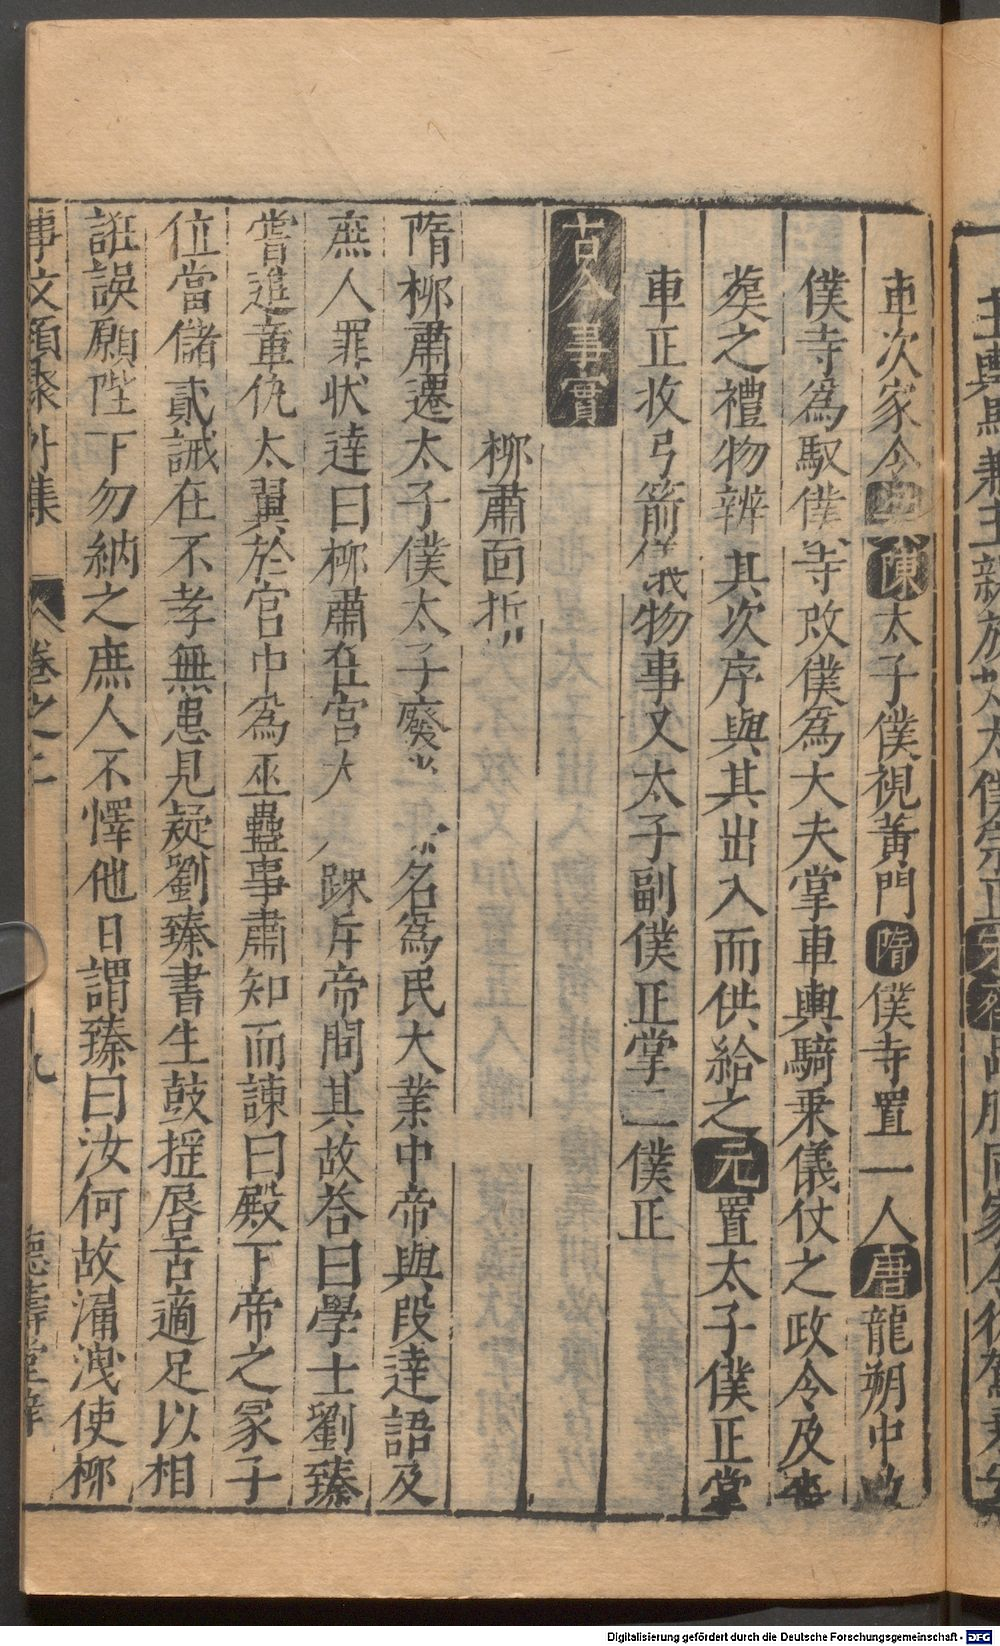 車次家令
陳太子僕視黃門隋僕寺置一人唐龍朔中改
僕寺為馭僕寺改僕為大夫掌車輿騎乘儀仗之政令及喪
葬之禮物辨其次序與其出入而供給之元置太子僕正掌
車正收弓箭 物事又太子副僕正掌二僕正
古今事實
柳肅面折
隋柳肅遷太子僕太子廢 名為民大業中帝與段達語及
庶人罪狀達曰柳肅在宮大 踈斥帝問其故荅曰學士劉臻
嘗進章仇太翼於宮中為巫蠱事肅知而諫曰殿下帝之冢子
位當儲貳誡在不孝無患見疑劉臻書生鼓揺唇舌適足以相
誑誤願陛下勿納之庶人不懌他日謂臻曰汝何故漏洩使柳
事文類聚外集 卷之二 九 德壽堂梓
Digitalisierung gefördert durch die Deutsche Forschungsgemeinschaft - DFG